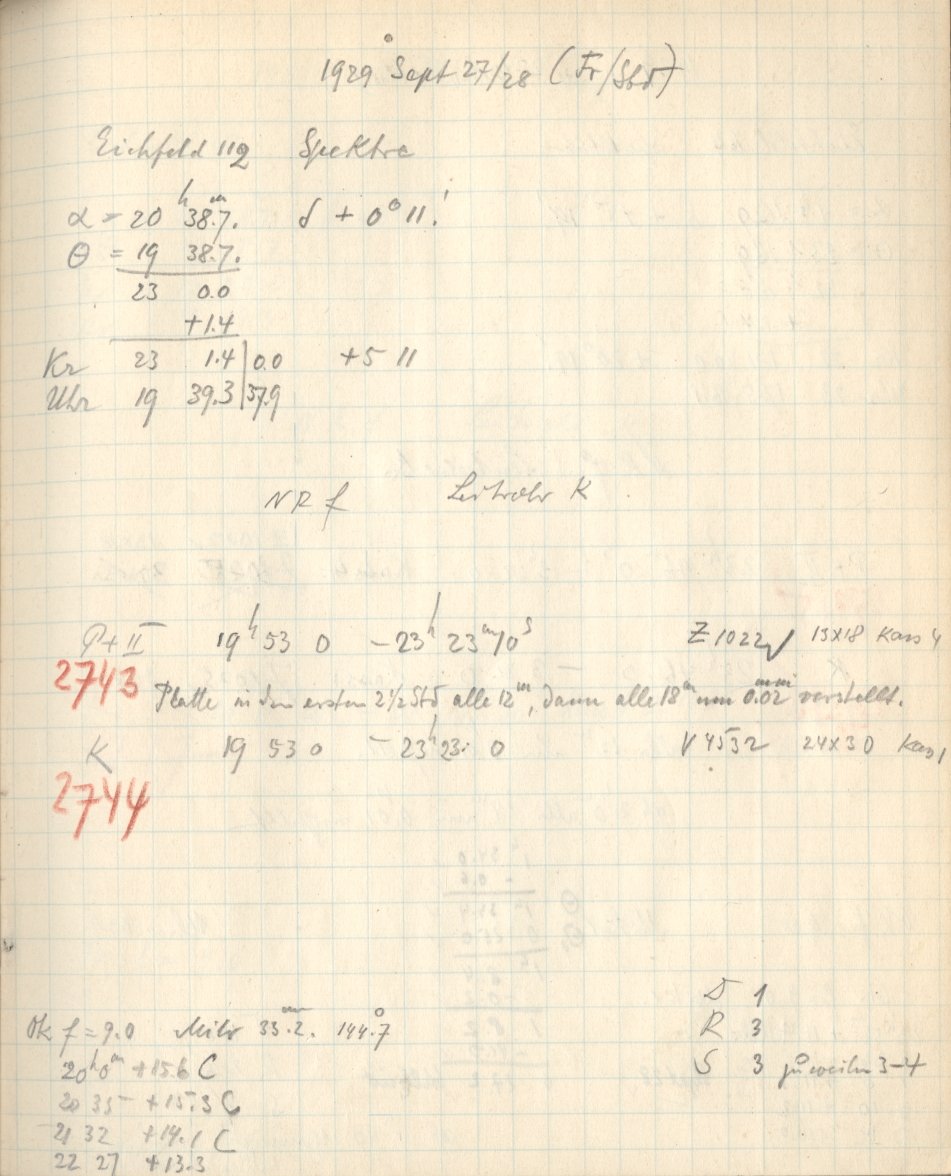 1929 Sept 27/28 (Fr/Sbd)
Eichfeld 112 Spektra
α = 20ʰ 38ᵐ.7. δ + 0° 11.'
Θ = 19 38.7.
23 0.0
+1.4
Kr 23 1.4 | 0.0 +5 11
Uhr 19 39.3 | 37.9
NR f Leitrohr K
P+II 19ʰ 53 0 – 23ʰ 23ᵐ 10ˢ Z 1022 13x18 Kass 4
2743 Platte in den ersten 2½ Std alle 12ᵐ, dann alle 18ᵐ um 0.02ᵐᵐ verstellt.
K 19 53 0 – 23ʰ 23 0 V 4532 24x30 Kass 1
2744
D 1
Ok f = 9.0 Mikr 33.2. 144.°7 R 3
20ʰ 0ᵐ +15.6 C S 3 zuweilen 3–4
20 35 +15.3 C
21 32 +14.1 C
22 27 +13.3